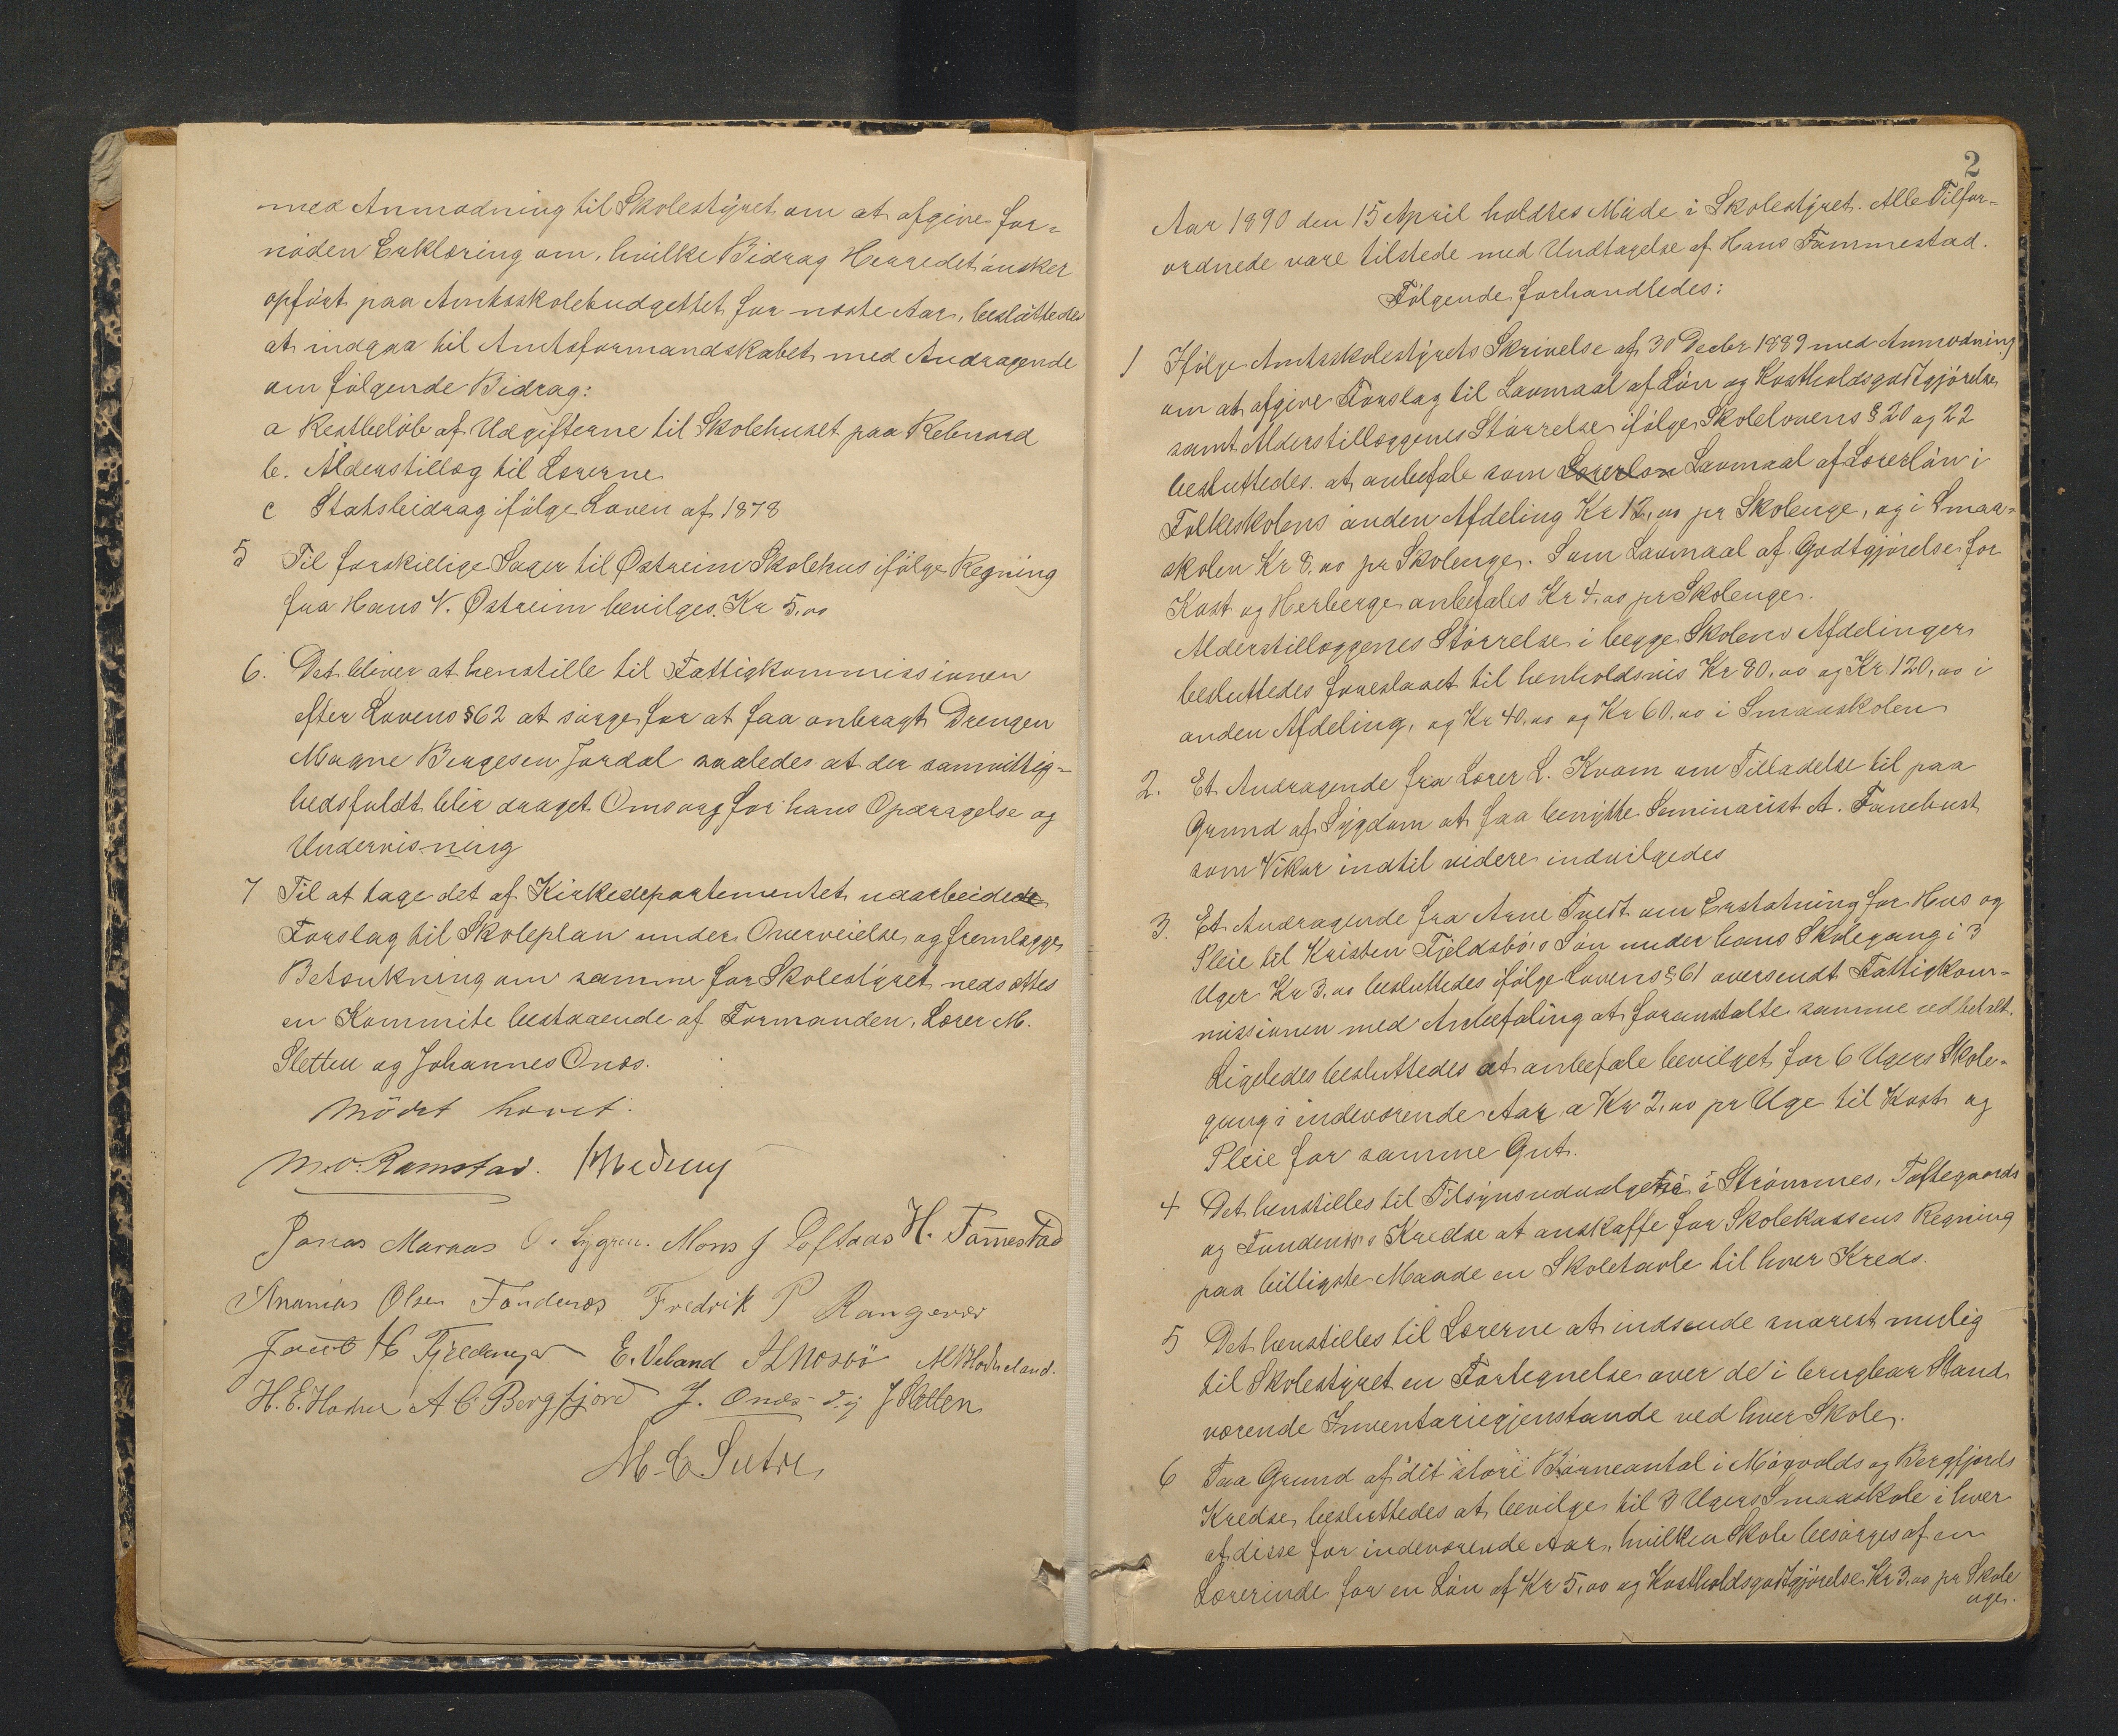 med Anmodning til Skolestyret om at afgive for-
nöden Erklæring om, hvilke Bidrag Herredet önsker
opfört paa Amtsskolebudgettet for næste Aar, besluttedes
at indgaa til Amtsformandskabet med Andragende
om fölgende Bidrag:
a Restbelöb af Udgifterne til Skolehuset paa Rebnord
b. Alderstillæg til Lærerne
c Statsbidrag ifölge Loven af 1878
5 Til forskjellige Sager til Østreim Skolehus ifölge Regning
fra Hans V. Østreim bevilges Kr 5,00
6. Det bliver at henstille til Fattigkommissionen
efter Lovens § 62 at sörge for at faa anbragt Drengen
Magne Bergesen Jordal saaledes at der samvittig-
hedsfuldt blir draget Omsorg for hans Opdragelse og
Undervisning
7 Til at tage det af Kirkedepartementet udarbeidede
Forslag til Skoleplan under Overveielse og fremlægge
Betænkning om samme for Skolestyret nedsættes
en Kommite bestaaende af Formanden, Lærer M.
Sletten og Johannes Onæs.
Mödet hævet.
M. O. Ramstad.
Jonas Marøas O. Lygren. Mons J Loftaas H. Tommestad
Ananias Olsen Fondenæs Fredrik P Rangøvær
Jacob H Fjeldanger E. Veland
A C Bergfjord J. Onæs J Sletten
M. C Sætre
2
Aar 1890 den 15 April holdtes Möde i Skolestyret. Alle Tilfor-
ordnede vare tilstede med Undtagelse af Hans Tommestad.
Fölgende forhandledes:
1 Ifölge Amtsskolestyrets Skrivelse af 30 Decbr 1889 med Anmodning
om at afgive Forslag til Lavmaal af Lön og Kostholdsgodtgjörelse
samt Alderstillæggenes Störrelse ifölge Skolelovens § 20 og 22
besluttedes at anbefale som Lærerlön Lavmaal af Lærerlön i
Folkeskolens anden Afdeling Kr 12,00 pr Skoleuge, og i Smaa-
skolen Kr 8,00 pr Skoleuge. Som Lavmaal af Godtgjörelse for
Kost og Herberge anbefales Kr 4,00 pr Skoleuge.
Alderstillæggenes Störrelse i begge Skolens Afdelinger
besluttedes foreslaaet til henholdsvis Kr 80,00 og Kr. 120,00 i
anden Afdeling, og Kr 40,00 og Kr 60,00 i Smaaskolen
2. Et Andragende fra Lærer L. Kvam om Tilladelse til paa
Grund af Sygdom at faa benytte Seminarist A. Fanebust
som Vikar indtil videre indvilgedes
3. Et Andragende fra Arne Tvedt om Erstatning for Hus og
Pleie til Kristen Fjeldsbö's Sön under hans Skolegang i 3
Uger Kr 3,00 besluttedes ifölge Lovens § 61 oversendt Fattigkom-
missionen med Anbefaling at foranstalte samme udbetalt.
Ligeledes besluttedes at anbefale bevilget for 6 Ugers Skole-
gang i indeværende Aar a Kr 2,00 pr Uge til Kost og
Pleie for samme Gut.
4 Det henstilles til Tilsynsudvalgene i Strömmes, Toftegaards
og Fondenæs's Kredse at anskaffe for Skolekassens Regning
paa billigste Maade en Skoletavle til hver Kreds.
5 Det henstilles til Lærerne at indsende snarest mulig
til Skolestyret en Fortegnelse over de i brugbar Stand
værende Inventariegjenstande ved hver Skole.
6 Paa Grund af det store Börneantal i Mögvolds og Bergfjords
Kredse besluttedes at bevilge til 3 Ugers Smaaskole i hver
af disse for indeværende Aar, hvilken Skole besörges af en
Lærerinde for en Lön af Kr 5,00 og Kostholdsgodtgjörelse Kr 3,00 pr Skole
uge.